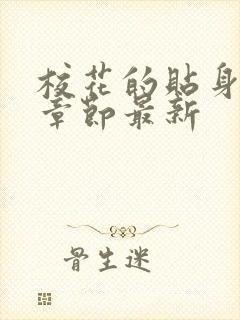 校花的贴身
章节最新
骨生迷